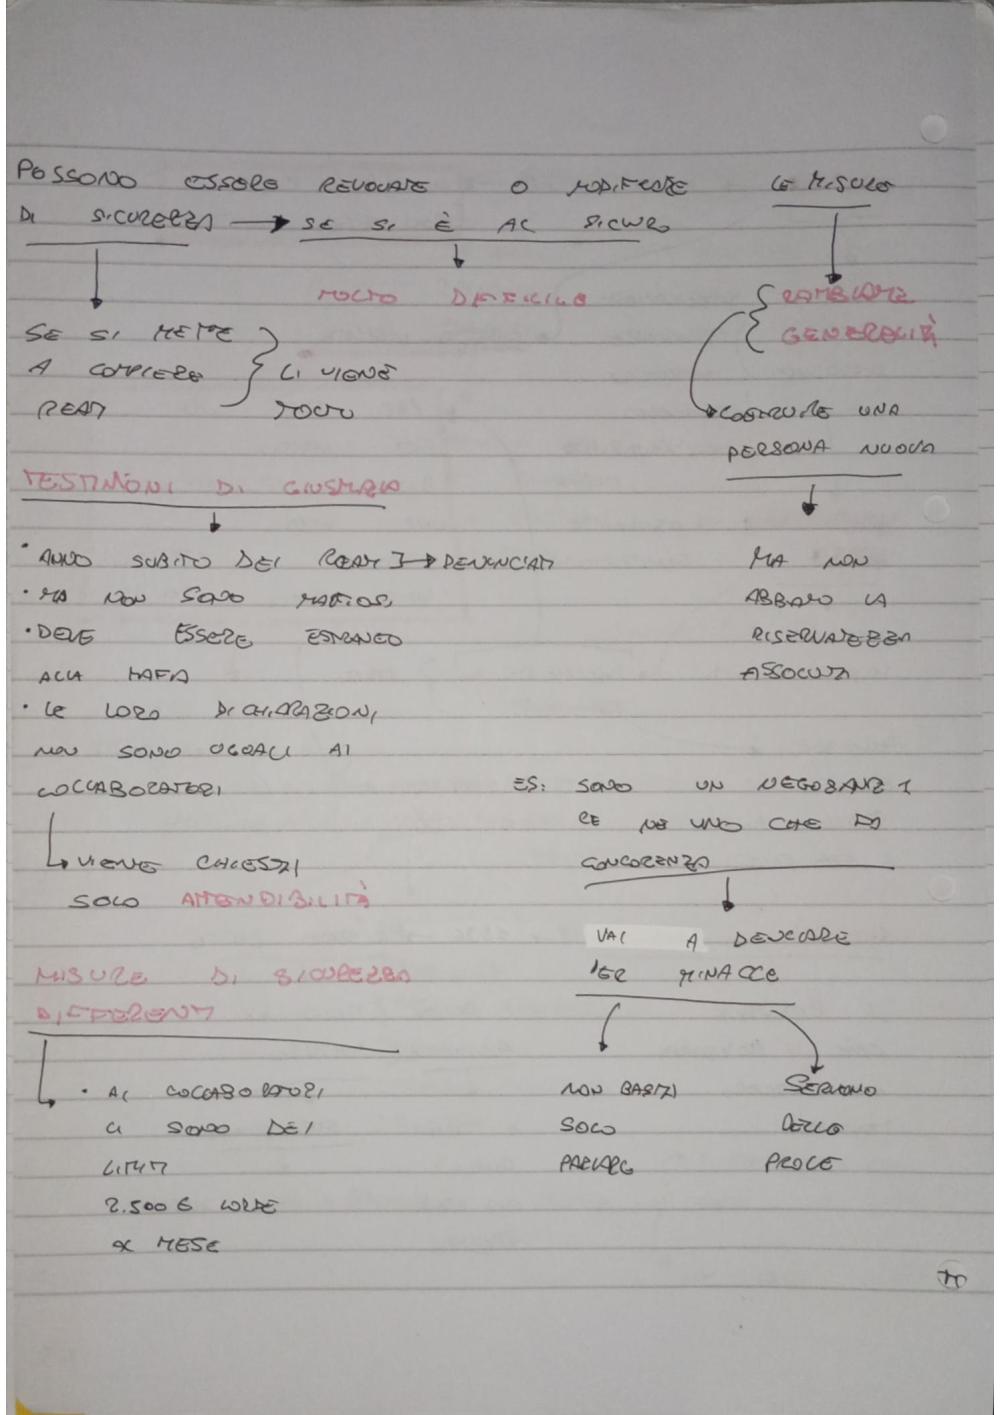 POSSONO ESSERE REVOCATE O MODIFICATE LE MISURE
DI SICUREZZA → SE SI È AL SICURO
MOLTO DIFFICILE
{ CAMBIAME
GENERALITÀ
SE SI METTE
A COMPIERE
REATI
} LI VIENE
TOLTO
COSTRUIRE UNA
PERSONA NUOVA
TESTIMONI DI GIUSTIZIA
• ANNO SUBITO DEI REATI ] → DENUNCIATI
• MA NON SONO MAFIOSI
• DEVE ESSERE ESTRANEO
ALLA MAFIA
• LE LORO DICHIARAZIONI
NON SONO UGUALI AI
COLLABORATORI
VIENE CHIESTA
SOLO ATTENDIBILITÀ
MA NON
ABBIAMO LA
RISERVATEZZA
ASSOLUTA
ES: SONO UN NEGOZIANTE
CE NE UNO CHE FA
CONCORENZA
VAI A DENUCIARE
PER MINACCE
NON BASTA
SOLO
PARLARE
SERVONO
DELLE
PROVE
MISURE DI SICUREZZA
DIFFERENTI
• AI COLLABORATORI
CI SONO DEI
LIMITI
2.500 € LORDE
X MESE